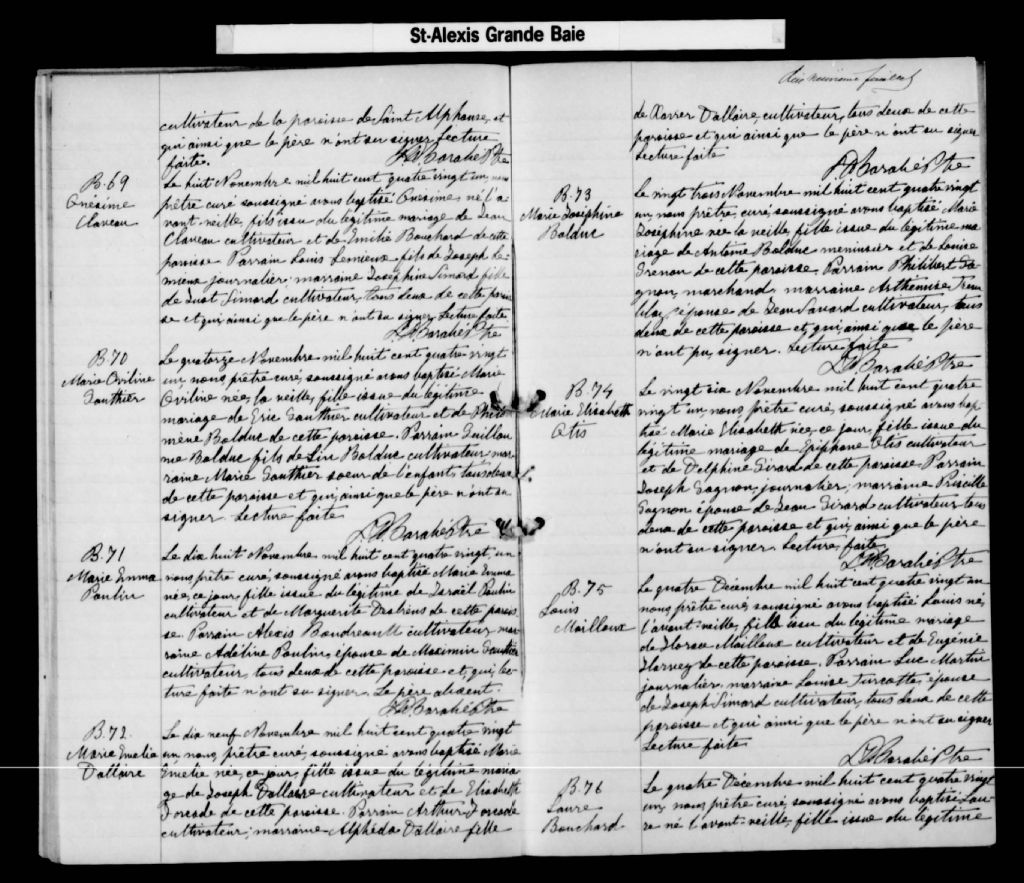 St-Alexis Grande Baie
feuillet
cultivateur de la paroisse de Saint Alphonse, et
qui ainsi que le père n'ont su signer Lecture
faite.
Ptre
B.69
Onésime
Claveau
Le huit Novembre mil huit cent quatre vingt un, nous
prêtre curé soussigné avons baptisé Onésime, né l'a-
vant-veille, fils issu du légitime mariage de Jean
Claveau cultivateur et de Emilie Bouchard de cette
paroisse Parrain Louis Lemieux fils de Joseph Le-
mieux journalier; marraine Joséphine Simard fille
de Just Simard cultivateur, tous deux de cette parois
se et qui, ainsi que le père n'ont su signer, Lecture faite
Ptre
B.70
Marie Oviline
Gauthier
Le quatorze Novembre mil huit cent quatre vingt
un, nous prêtre curé, soussigné avons baptisé Marie
Oviline née, la veille, fille issue du légitime
mariage de Eric Gauthier cultivateur et de Philo
mène Bolduc de cette paroisse. Parrain Guillau
me Bolduc fils de Lin Bolduc cultivateur; mar-
raine Marie Gauthier soeur de l'enfant, tous deux
de cette paroisse et qui, ainsi que le père n'ont su
signer Lecture faite
Ptre
B.71
Marie Emma
Poulin
Le dix huit Novembre mil huit cent quatre vingt un
nous prêtre curé, soussigné avons baptisé Marie Emma
née, ce jour, fille issue du légitime de Israël Poulin
cultivateur et de Marguerite Desbiens de cette parois
se. Parrain Alexis Boudreault cultivateur, mar-
raine Adéline Poulin, épouse de Maximin Gauthier
cultivateur, tous deux de cette paroisse et, qui, lec-
ture faite n'ont su signer. Le père absent.
Ptre
B.72.
Marie Emelie
Dallaire
Le dix neuf Novembre mil huit cent quatre vingt
un, nous, prêtre curé, soussigné avons baptisé Marie
Emelie née, ce jour, fille issue du légitime maria
ge de Joseph Dallaire cultivateur et de Elisabeth
Forcade de cette paroisse. Parrain Arthur Forcade
cultivateur; marraine Alphéda Dallaire fille
de Xavier Dallaire, cultivateur, tous deux de cette
paroisse et qui ainsi que le père n'ont su signer
Lecture faite
Ptre
B.73
Marie Joséphine
Bolduc
Le vingt trois Novembre mil huit cent quatre vingt
un, nous prêtre, curé, soussigné avons baptisé Marie
Joséphine née la veille, fille issue du légitime ma
riage de Antoine Bolduc menuisier et de Louise
Grenon de cette paroisse, Parrain Philibert Ga-
gnon, marchand marraine Arthémise Trem
blay, épouse de Jean Savard cultivateur, tous
deux de cette paroisse et, qui, ainsi que le père
n'ont pu, signer. Lecture faite
Ptre
B.74
Marie Elisabeth
Otis
Le vingt six Novembre mil huit cent quatre
vingt un, nous, prêtre curé, soussigné avons bap-
tisé Marie Elisabeth née, ce jour, fille issue du
légitime mariage de Epiphane Otis cultivateur
et de Delphine Girard de cette paroisse Parrain
Joseph Gagnon, journalier; marraine Priscille
Gagnon épouse de Jean Girard cultivateur tous
deux de cette paroisse et qui, ainsi que le père
n'ont su signer. Lecture faite
Ptre
B.75
Louis
Mailloux
Le quatre Décembre mil huit cent quatre vingt un
nous, prêtre curé, soussigné avons baptisé Louis né,
l'avant-veille, fils issu du légitime mariage
de Mailloux cultivateur et de Eugénie
Harvey de cette paroisse. Parrain Luc Martin
journalier, marraine Louise Turcotte, épouse
de Joseph Simard cultivateur, tous deux de cette
paroisse et qui ainsi que le père n'ont su signer
Lecture faite
Ptre
B.76
Laure
Bouchard
Le quatre Décembre mil huit cent quatre vingt
un, nous prêtre curé, soussigné avons baptisé Lau-
re né l'avant-veille, fille issue du légitime